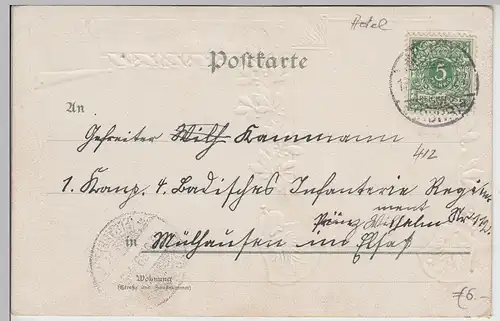 Adel
Postkarte
5
An
Gefreiter Wilh Kammann
412
1. Komp. 4. Badisches Infanterie Regi
ment
Prinz Wilhelm Nr 112
in Mülhausen im Elsaß
Wohnung
(Straße und Hausnummer)
€6.-